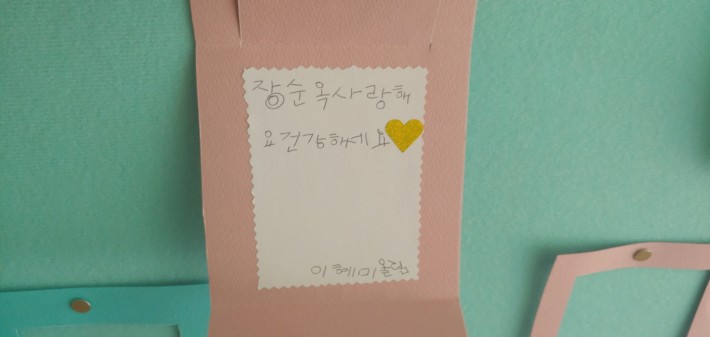 장순옥사랑해
요건강해세요
이혜미올림